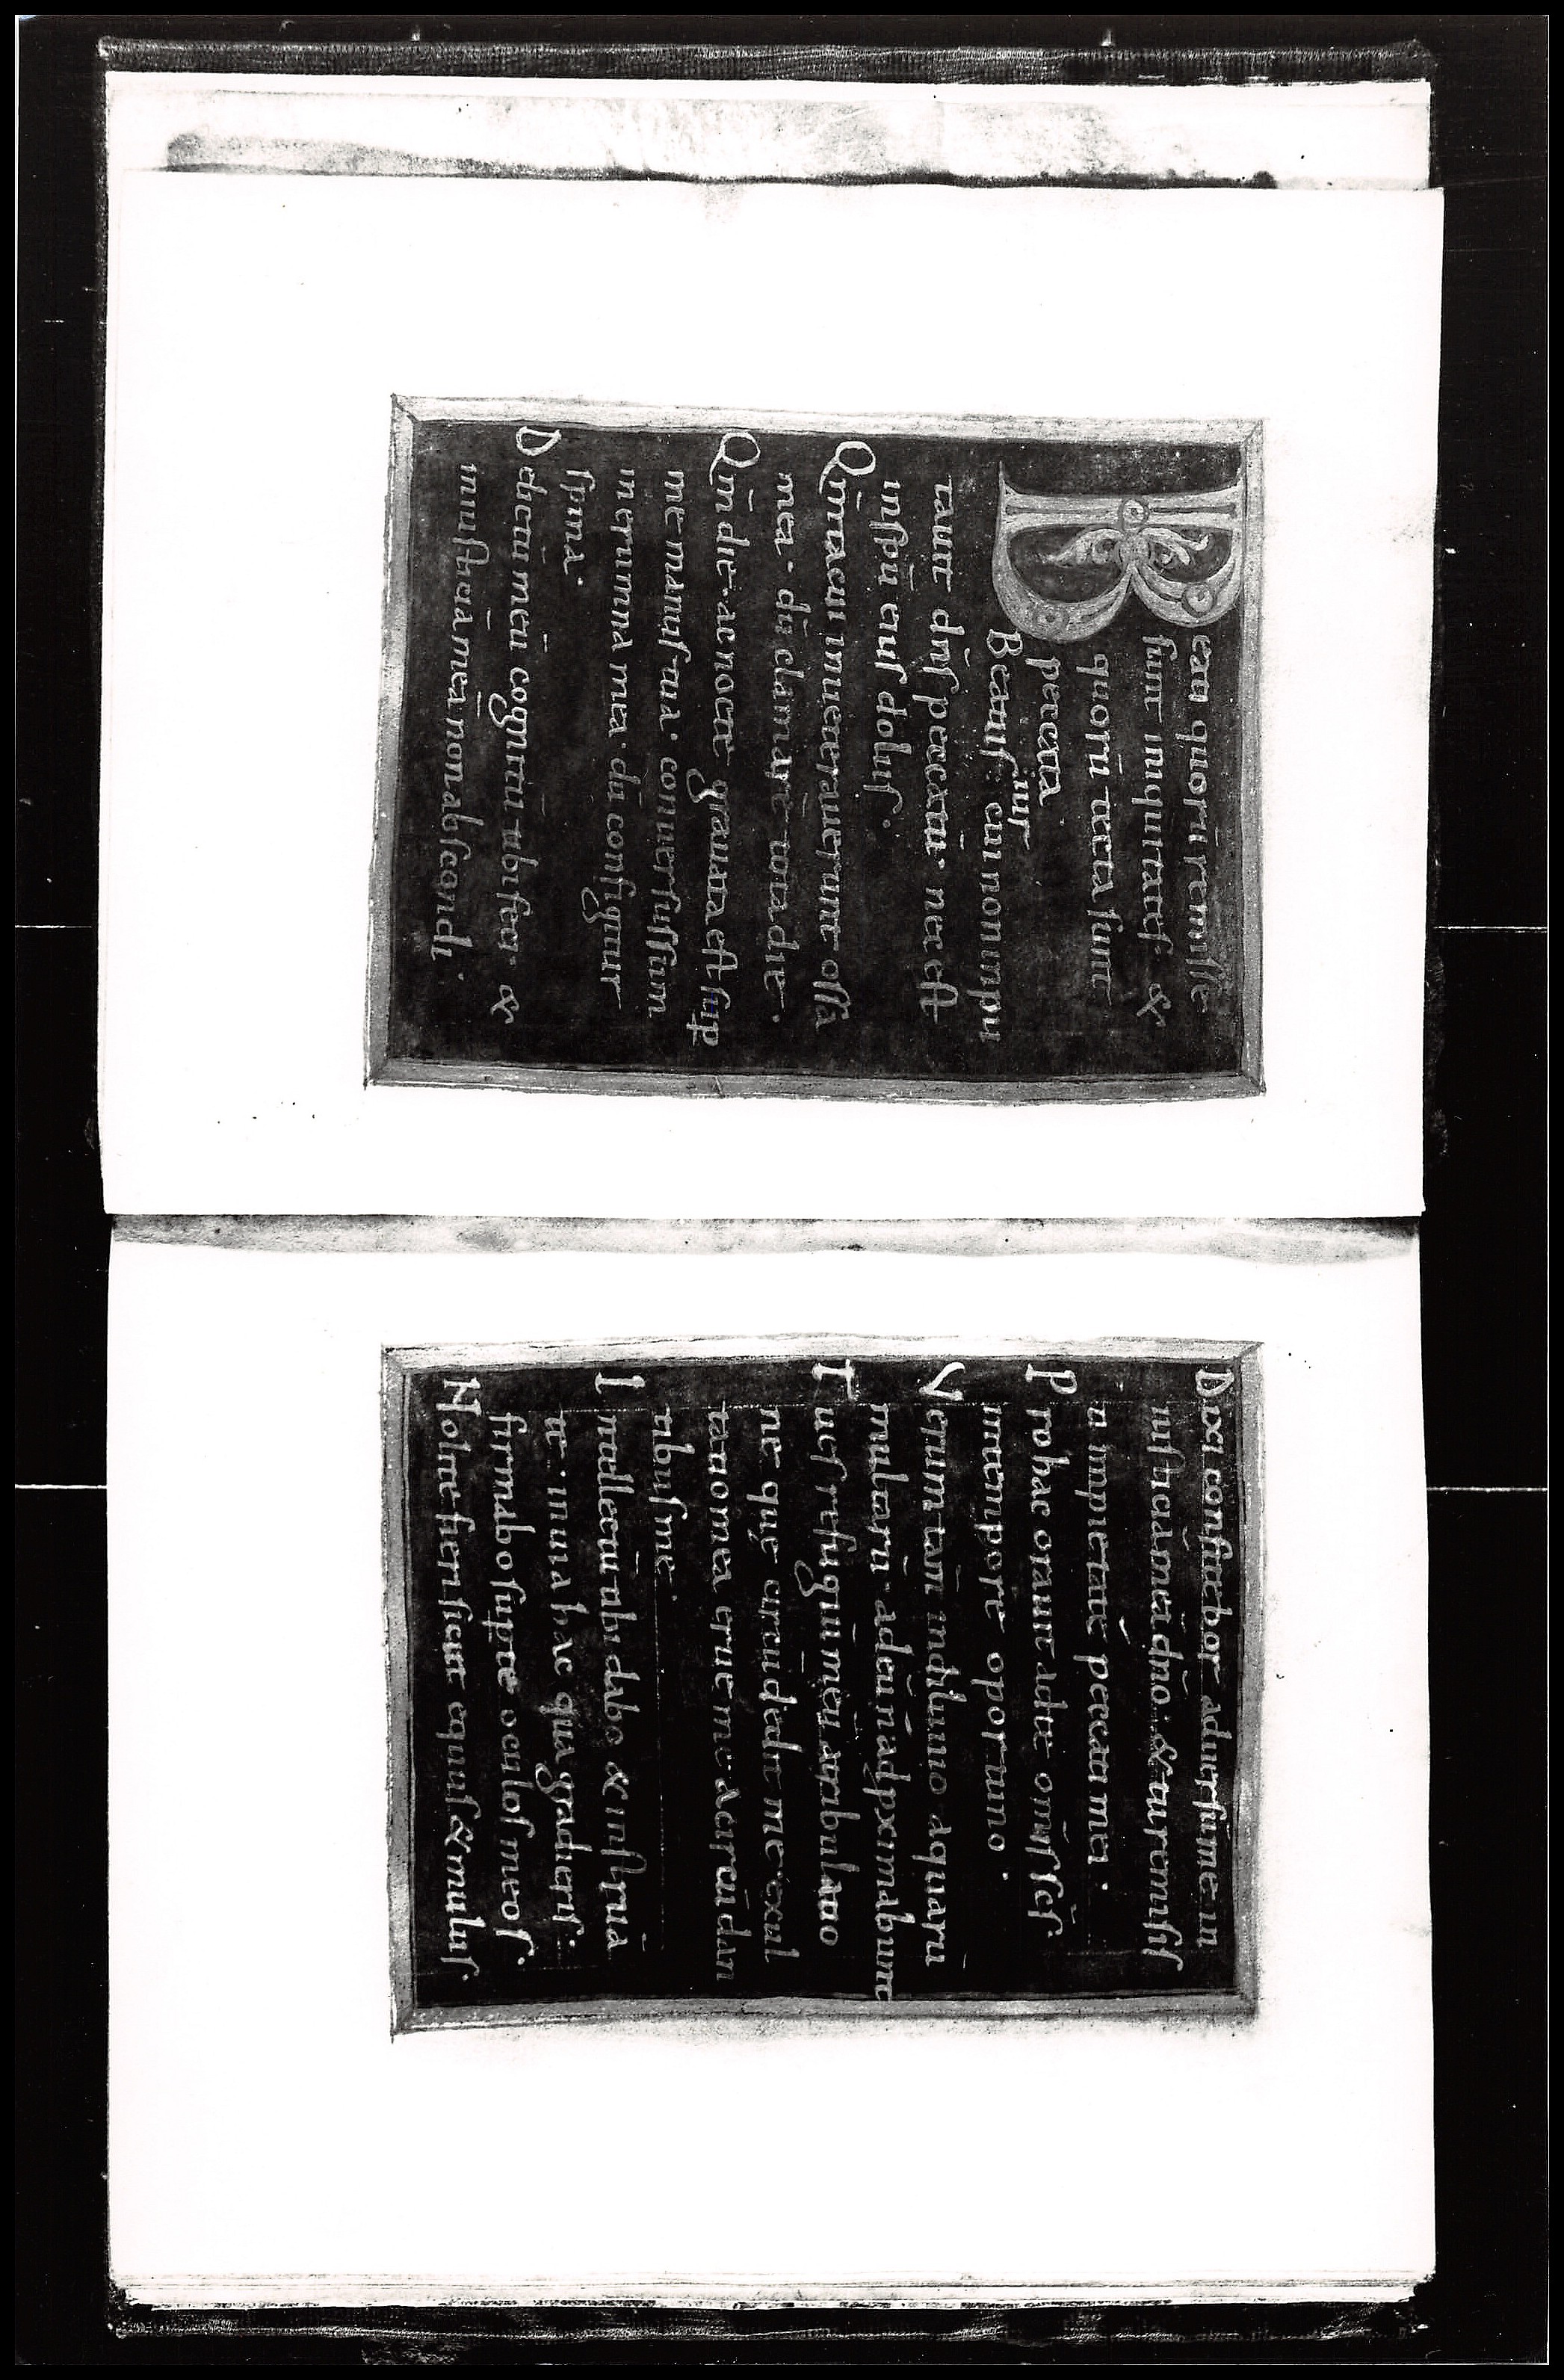 Beati quorū remisse
sunt iniquitates & 
quorū tecta sunt
peccata
Beatus: cui non inpu
tauit dn̄s peccatū. nec est
in sp̄u eius dolus.
Qm̄ tacui inueterauerunt ossa
mea. dū clamarē tota die.
Qm̄ die. ac nocte grauata est sup̱
me manus tua. conuersus sum
in erumna mea. dū configitur
spina.
Delictū meū cognitū tibi feci. &
iniustitiā meā non abscondi.
Dixi confitebor aduersū me in
iustitiā meā dn̄o: & tu remisisti
a impietatē peccati mei.
Pro hac orauit ad te om̄is sc̄s.
in tempore oportuno.
Verum tam̄ in diluuio aquarū
multarū. ad eū nō adp̱ximabunt
Tu es refugiū meū a tribulatio
ne quę circūdedit me. exul
tatio mea erue me. a circūdan
tibus me.
Intellectū tibi dabo & instruā
te. in uia hac qua gradieris:
firmabo sup̱ te oculos meos.
Nolite fieri sicut equus & mulus.